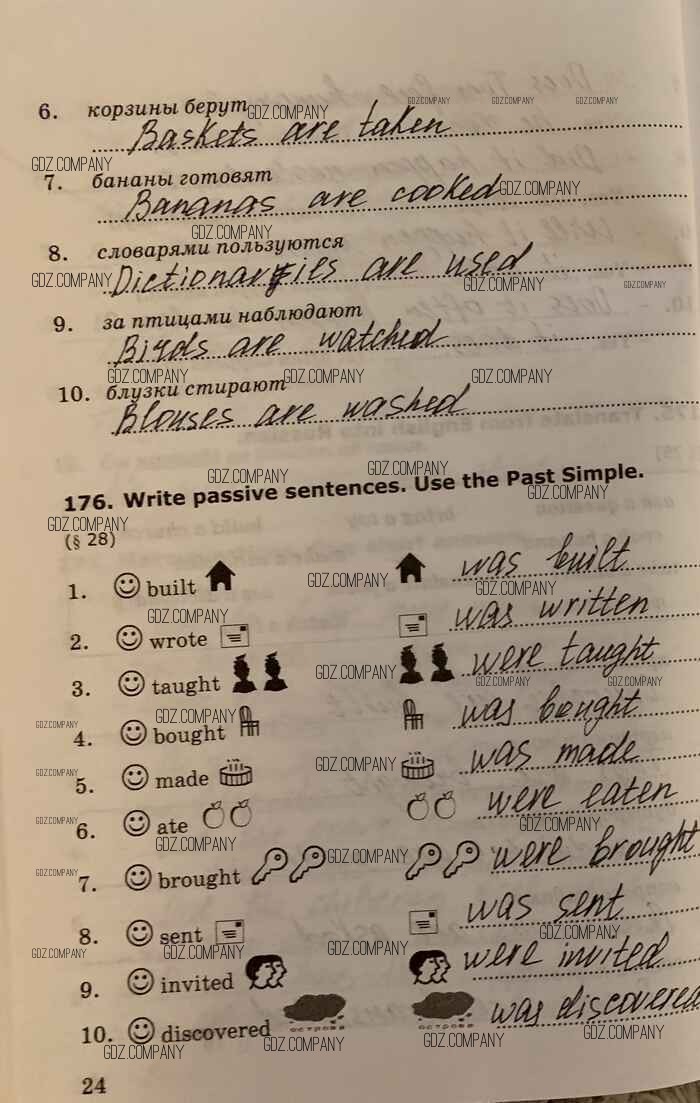 6. корзины берут
Baskets are taken
7. бананы готовят
Bananas are cooked
8. словарями пользуются
Dictionaries are used
9. за птицами наблюдают
Birds are watched
10. блузки стирают
Blouses are washed
176. Write passive sentences. Use the Past Simple.
(§ 28)
1. built was built
2. wrote was written
3. taught were taught
4. bought was bought
5. made was made
6. ate were eaten
7. brought were brought
8. sent was sent
9. invited were invited
10. discovered острова острова was discovered
24
GDZ.COMPANY